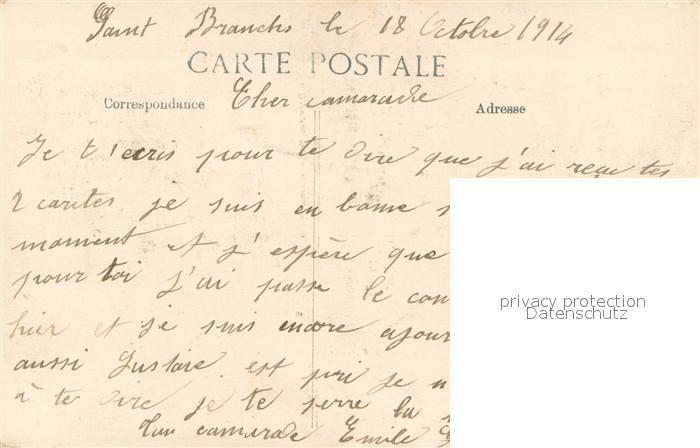 Saint Branchs le 18 Octobre 1914
CARTE POSTALE
Correspondance Cher camarade Adresse
Je t'ecris pour te dire que j'ai reçu tes
2 cartes je suis en bonne
moment et j'espère que
pour toi j'ai passe le con
hier et je suis encore ajour
aussi Gustave est pri je n
à te dire je te serre la
Ton camarade Emile
privacy protection
Datenschutz